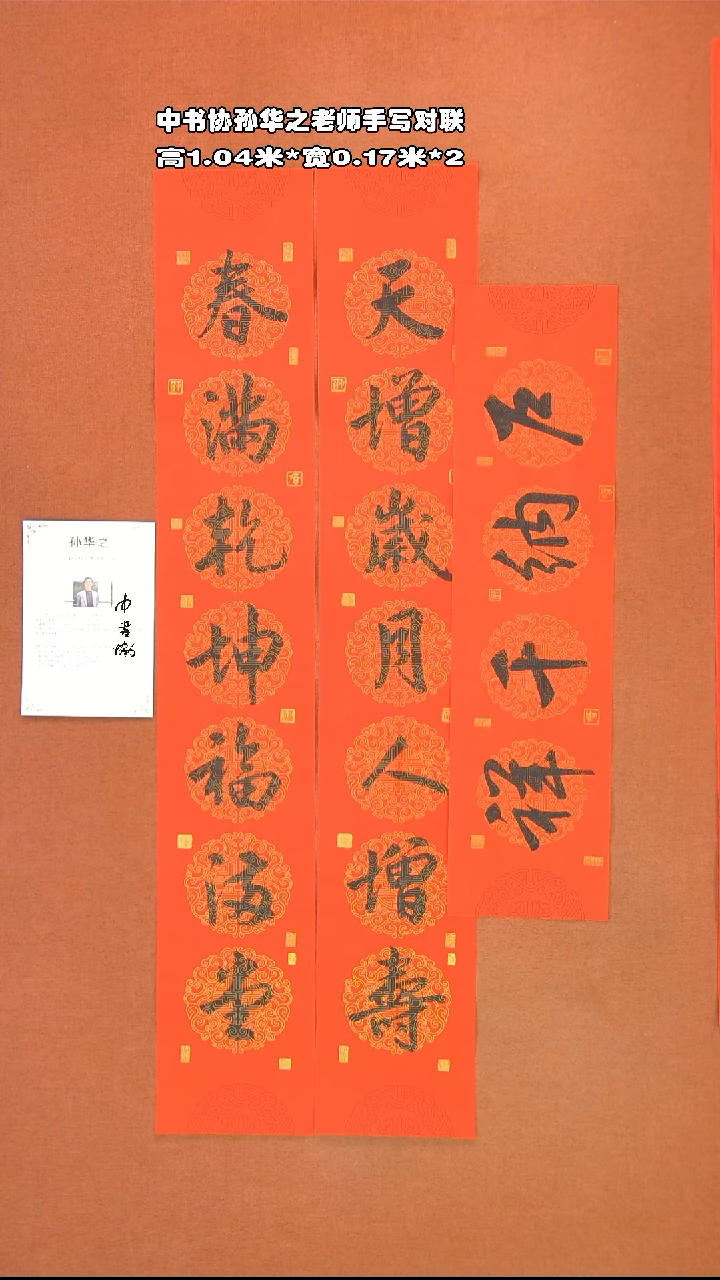 中书协孙华之老师手写对联
高1.04米*宽0.17米*2
天增歲月人增壽
春满乾坤福满堂
户纳千祥
孙华之
中书协